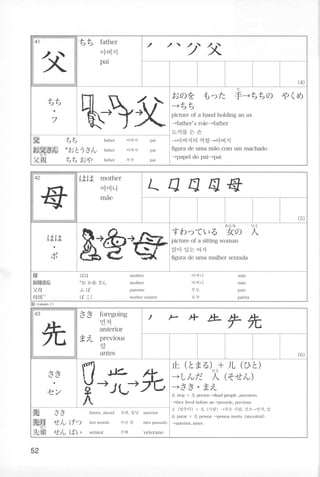 41
父
ちち father
아버지
pai
(4)
ちち
・
フ
おのを もった 手→ちちの やくめ
→ちち
picture of a hand holding an ax
→father's role→father
도끼를 든 손
→아버지의 역할→아버지
figura de uma mão com um machado
→papel do pai→pai
父 ちち father 아버지 pai
お父さん *おとうさん father 아버지 pai
父親 ちち おや father 부친 pai
42
母
はは mother
어머니
mãe
(5)
はは
・
ボ
すわっている 女の 人
おんな ひと
picture of a sitting woman
앉아 있는 여자
figura de uma mulher sentada
母 はは mother 어머니 mãe
お母さん *お かあ さん mother 어머니 mãe
父母 ふ ぼ parents 부모 pais
母国 ぼ こく mother country 모국 pátria
43
先
さき foregoing
먼저
anterior
まえ previous
앞
antes
(6)
さき
・
セン
止 (とまる) + 儿 (ひと)
→しんだ 人 (そせん)
ひと
→さき・まえ
止 stop + 儿 person →dead people, ancestors
→they lived before us →precede, previous
止 parar + 儿 pessoa →pessoa morta (ancestral)
→anterior, antes
先 さき future, ahead anterior
先月 せん げつ last month 지난 달 mês passado
先輩 せん ぱい senior 선배 veterano
52